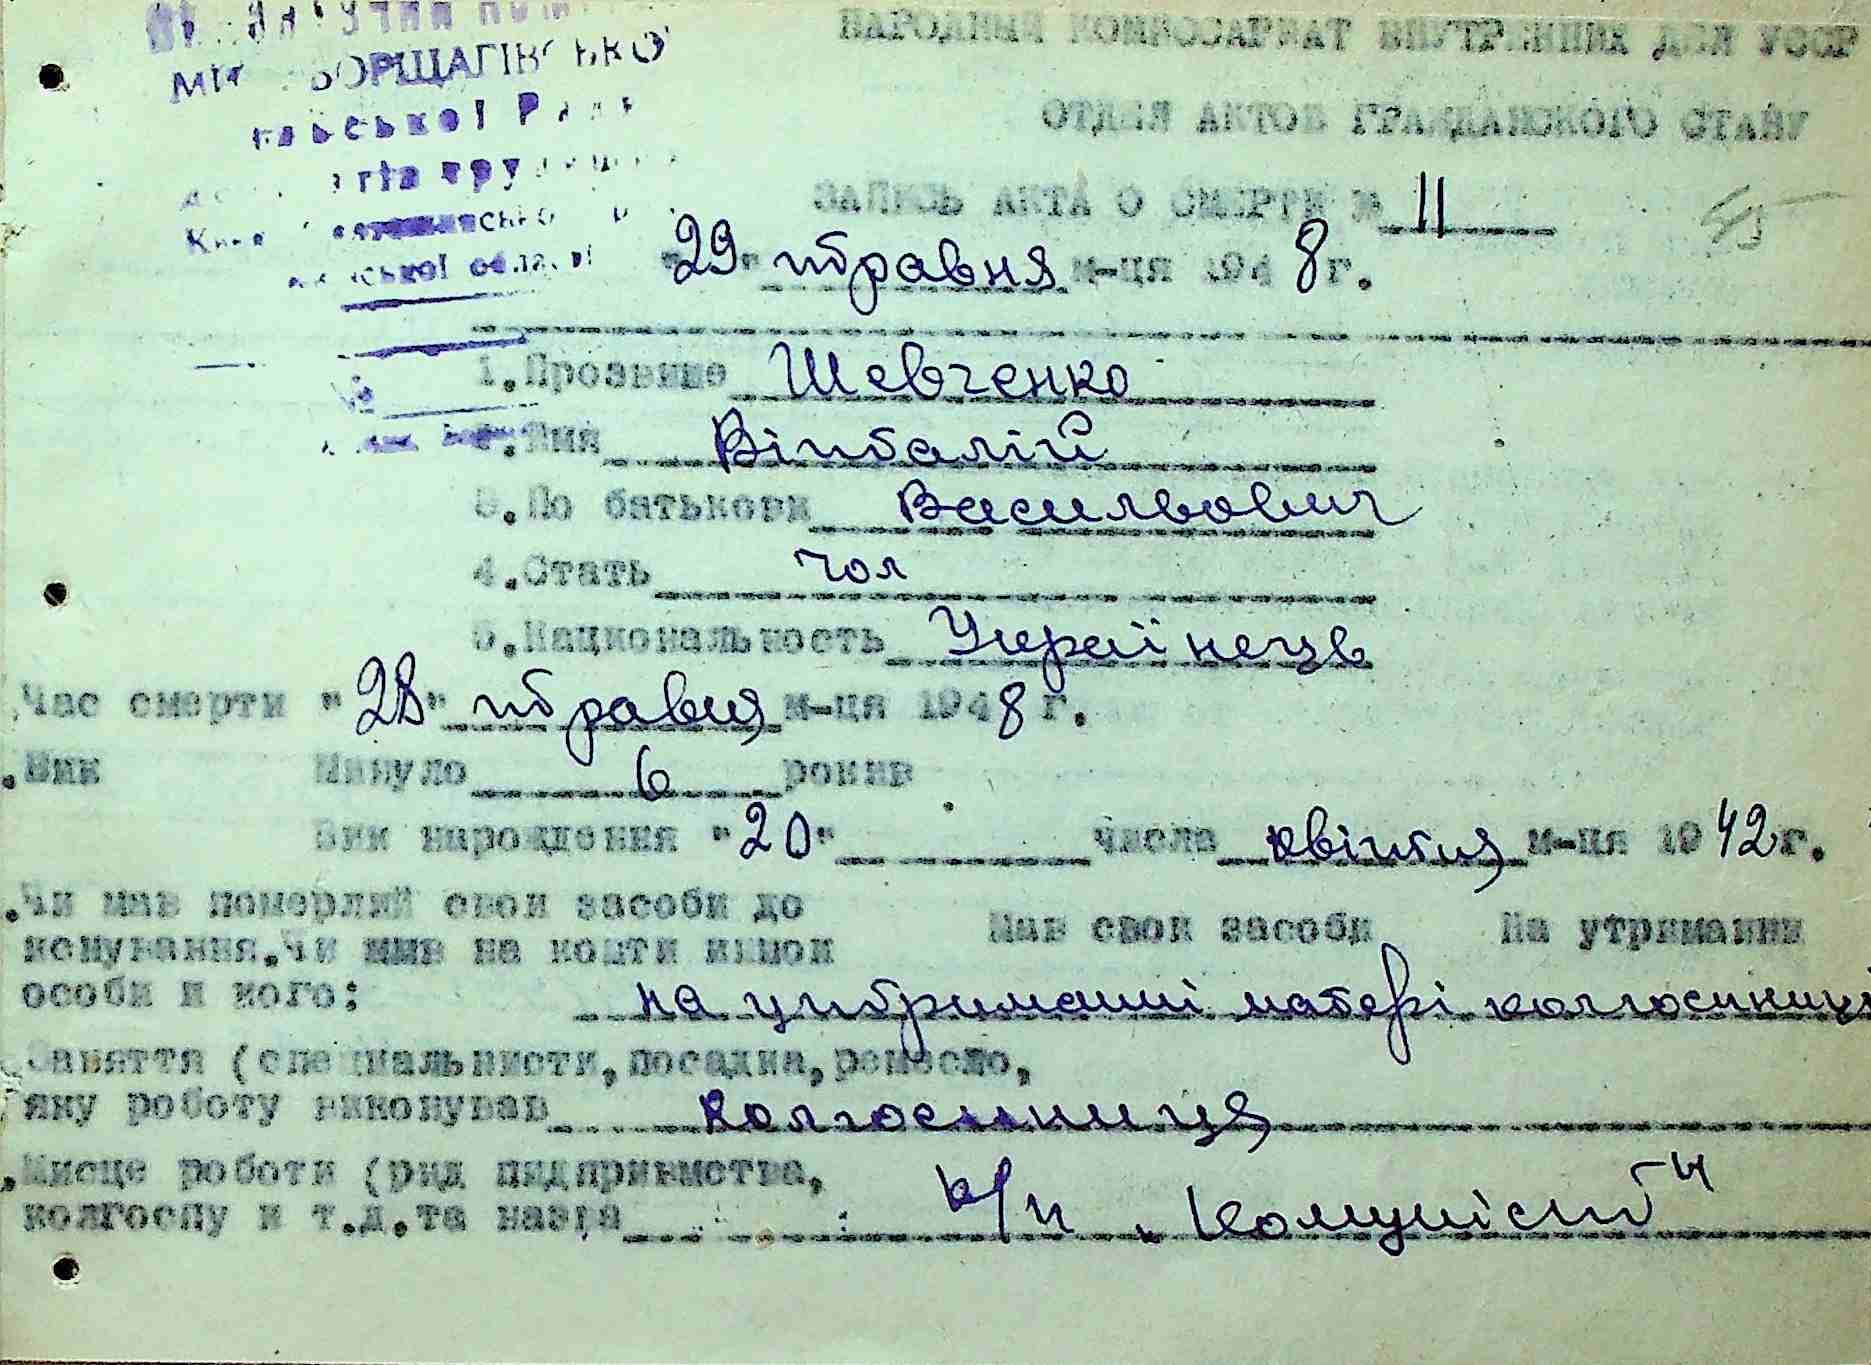 НАРОДНИЙ КОМИССАРИАТ ВНУТРЕННИХ ДЕЛ УССР
ОТДЕЛ АКТОВ ГРАЖДАНСКОГО СТАНУ
БОРЩАГІВСЬКО
Ради
ЗАПИСЬ АКТА О СМЕРТИ № 11
"29" травня м-ця 1948 г.
області
1.Прозвище Шевченко
2.Имя Віталій
3.По батькови Васильович
4.Стать чол
5.Национальность Українець
Час смерти "28" травня м-ця 1948 г.
.Вик Минуло 6 рокив
Вик народдення "20" числа квітня м-ця 1942 г.
.Чи мав померлий свои засоби до
иснування.Чи жив на кошти иншои
особи и кого:
Мав свои засоби На утриманни
на утриманні матері колгоспниці
Заняття (специальности, посадка, ремесло,
яку роботу виконував колгоспниця
.Мисце роботи (рид пидприемства,
колгоспу и т.д. та назва к/г "Комуніст"